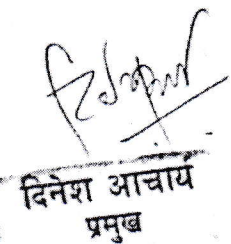 दिनेश आचार्य
प्रमुख